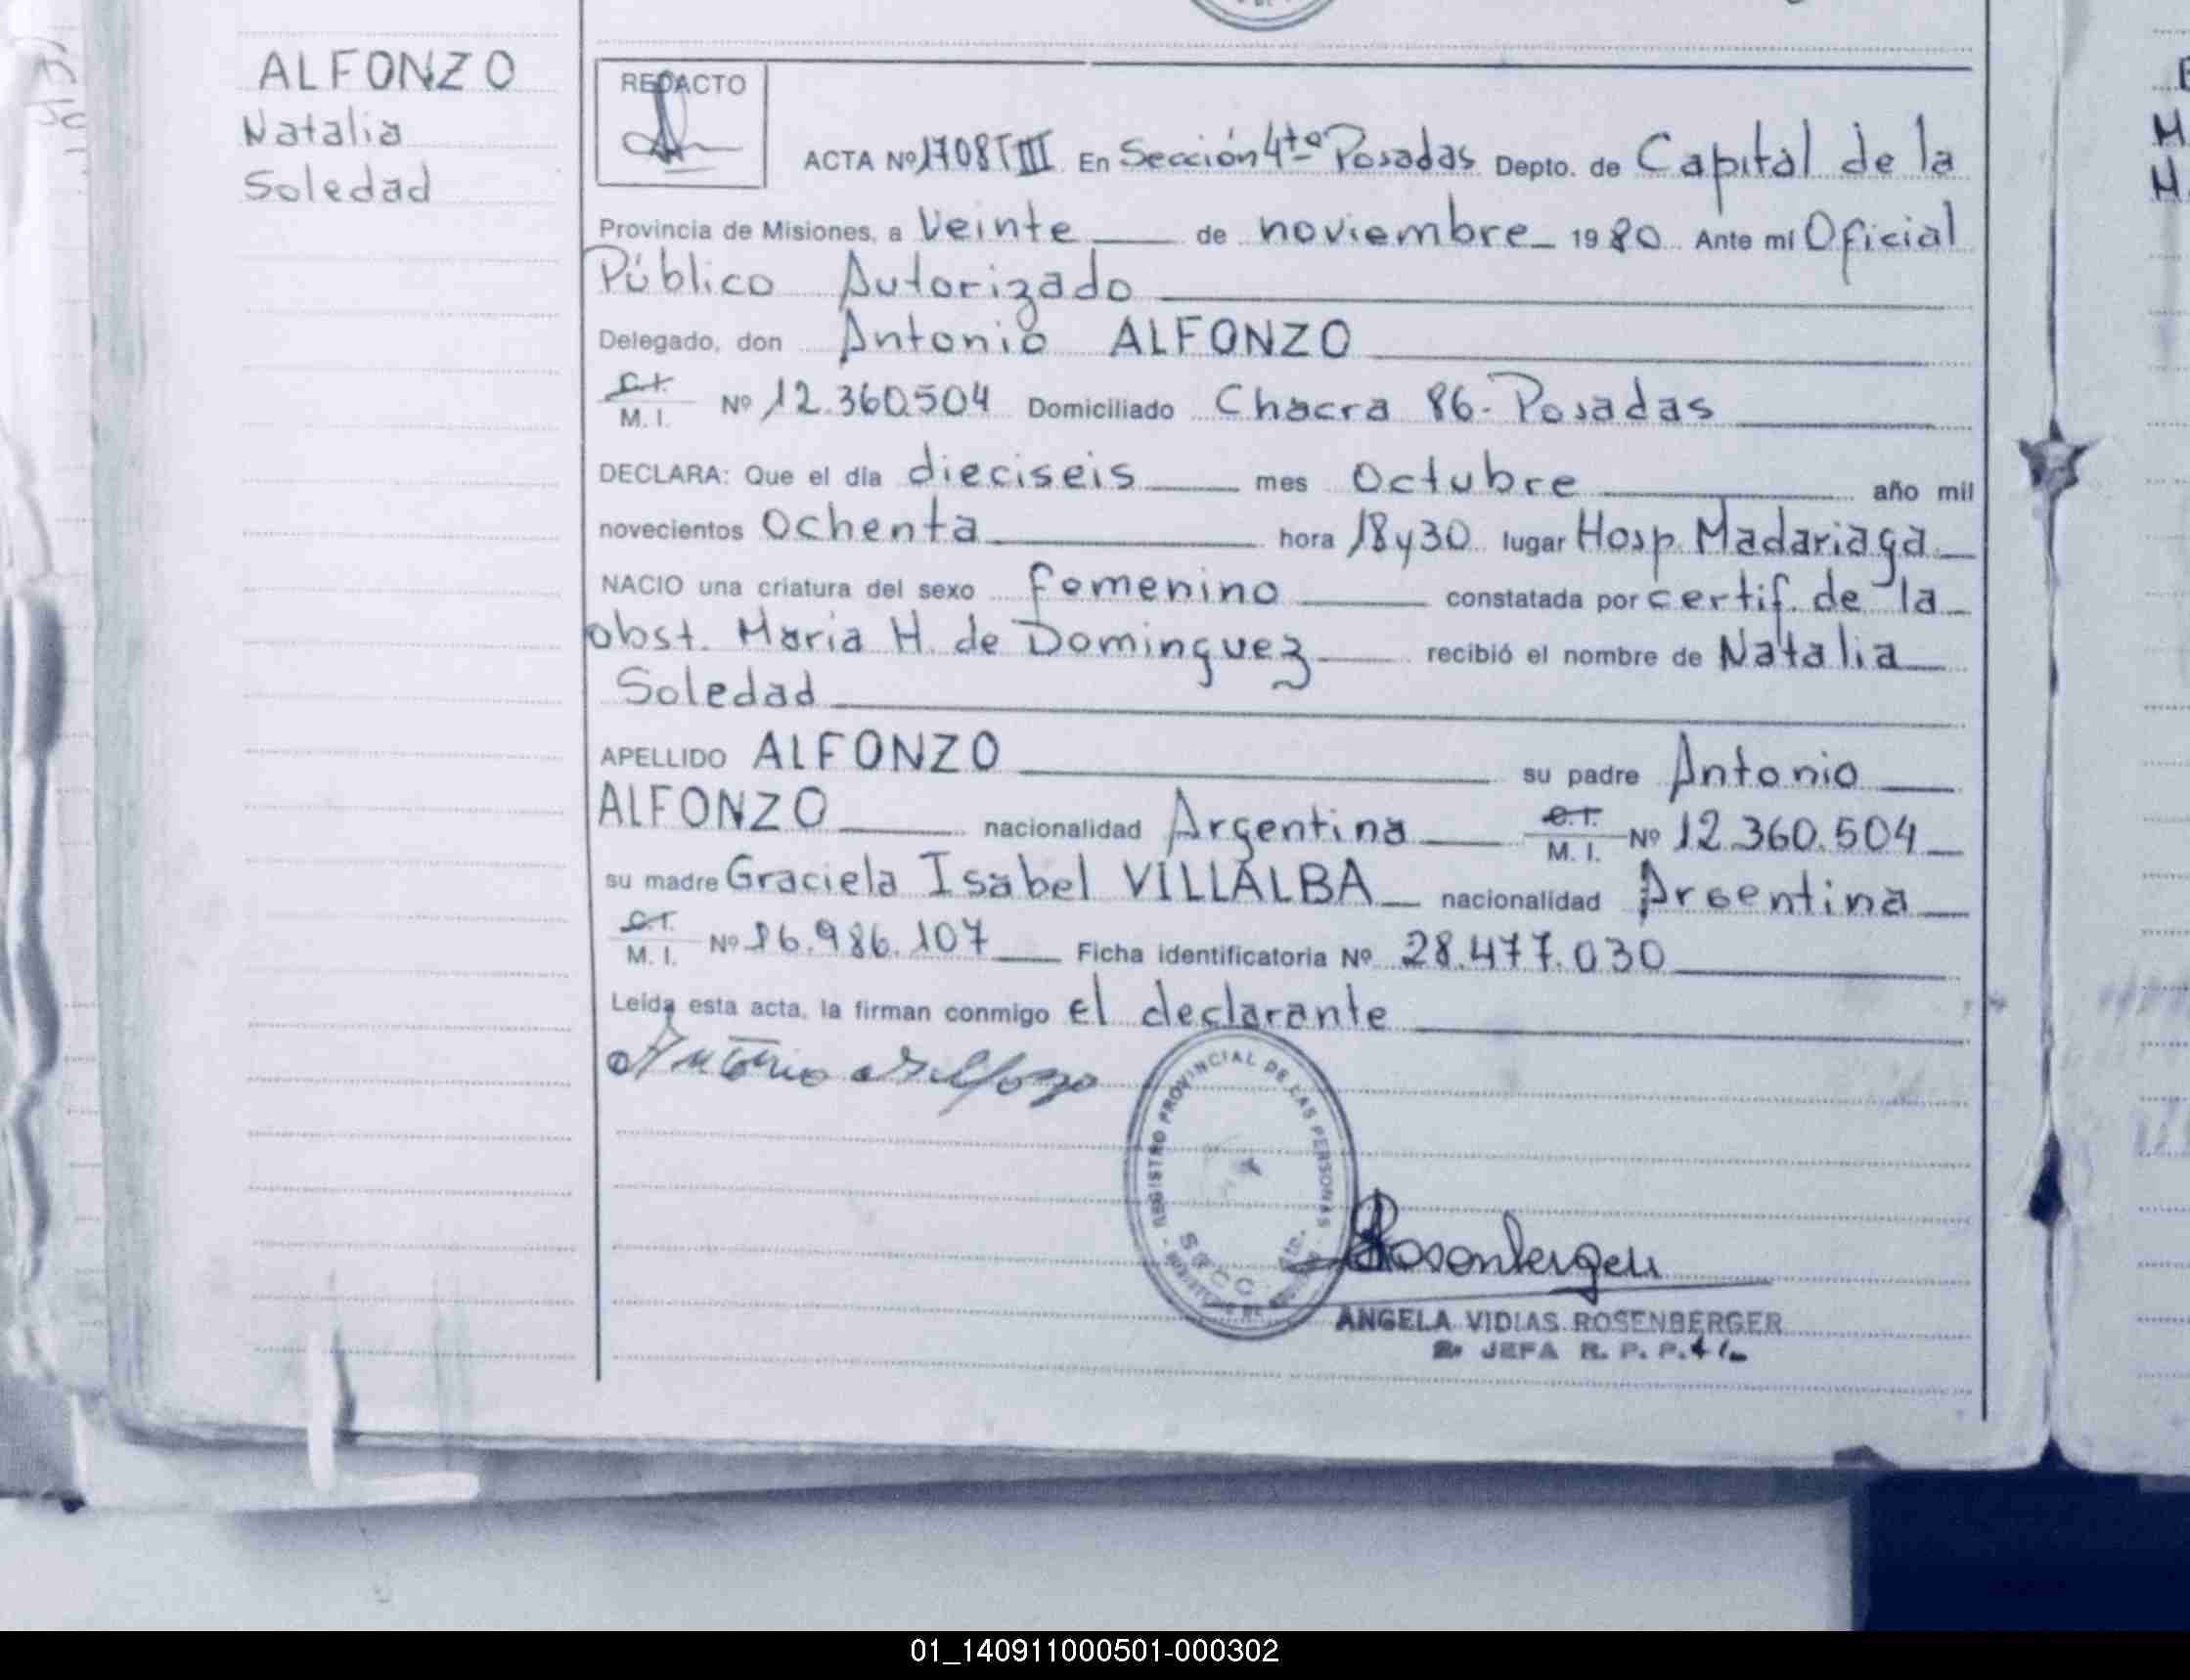 ALFONZO
Natalia
Soledad
REDACTO
ACTA Nº 1708 TIII En Sección 4ta Posadas Depto. de Capital de la
Provincia de Misiones, a Veinte de noviembre 1980 Ante mí Oficial
Público Autorizado
Delegado, don Antonio ALFONZO
C.I. M. I. Nº 12.360.504 Domiciliado Chacra 86 - Posadas
DECLARA: Que el día dieciseis mes Octubre año mil
novecientos Ochenta hora 18 y 30 lugar Hosp. Madariaga
NACIO una criatura del sexo femenino constatada por certif. de la
obst. Maria H. de Dominguez recibió el nombre de Natalia
Soledad
APELLIDO ALFONZO su padre Antonio
ALFONZO nacionalidad Argentina C.I. M. I. Nº 12.360.504
su madre Graciela Isabel VILLALBA nacionalidad Argentina
C.I. M. I. Nº 16.986.107 Ficha identificatoria Nº 28.477.030
Leída esta acta, la firman conmigo el declarante
Antonio Alfonzo
REGISTRO PROVINCIAL DE LAS PERSONAS
SECC. 4ta.
Rosenberger
ANGELA VIDIAS ROSENBERGER
JEFA R. P. P. 4ta
01_140911000501-000302